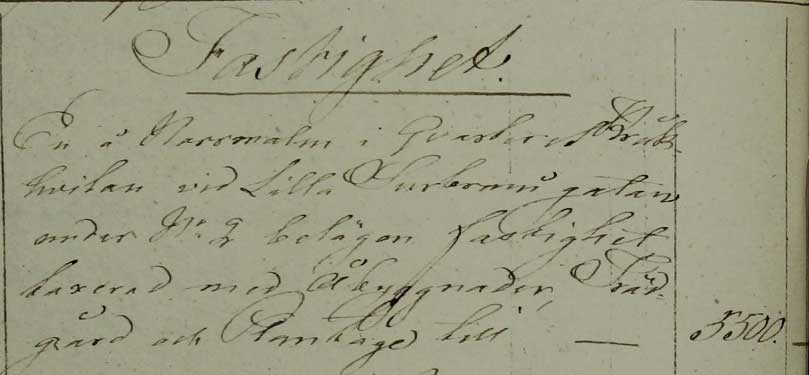 Fastighet.
En å Norrmalm i Qvarteret Träd-
hvilan vid Lilla Surbruns gatan
under N:o 2 belägen fastighet
taxerad med Åbyggnader, Träd-
gård och Plantage till — 5500.